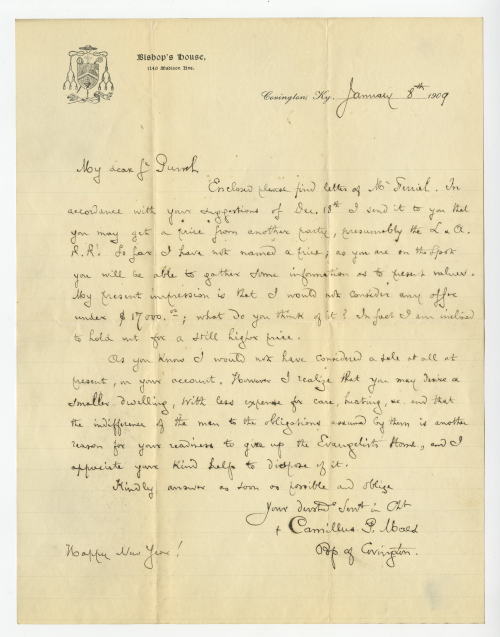 Bishop's House,
1140 Madison Ave.
Covington, Ky. January 8th 1909
My dear Fr
Enclosed please find letter of Mr . In
accordance with your suggestions of Dec. 18th I send it to you that
you may get a price from another party, presumably the L & A.
R.R! So far I have not named a price; as you are on the spot
you will be able to gather some information as to present values.
My present impression is that I would not consider any offer
under $17000.00; what do you think of it? In fact I am inclined
to hold out for a still higher price.
As you know I would not have considered a sale at all at
present, on your account. However I realize that you may desire a
smaller dwelling, with less expense for care, heating, &c. and that
the indifference of the men to the obligations assumed by them is another
reason for your readiness to give up the Evangelists Home, and I
appreciate your kind help to dispose of it.
Kindly answer as soon as possible and oblige
Your devoted Servt in Xt
+ Camillus P. Maes
Bp of Covington.
Happy New Year!